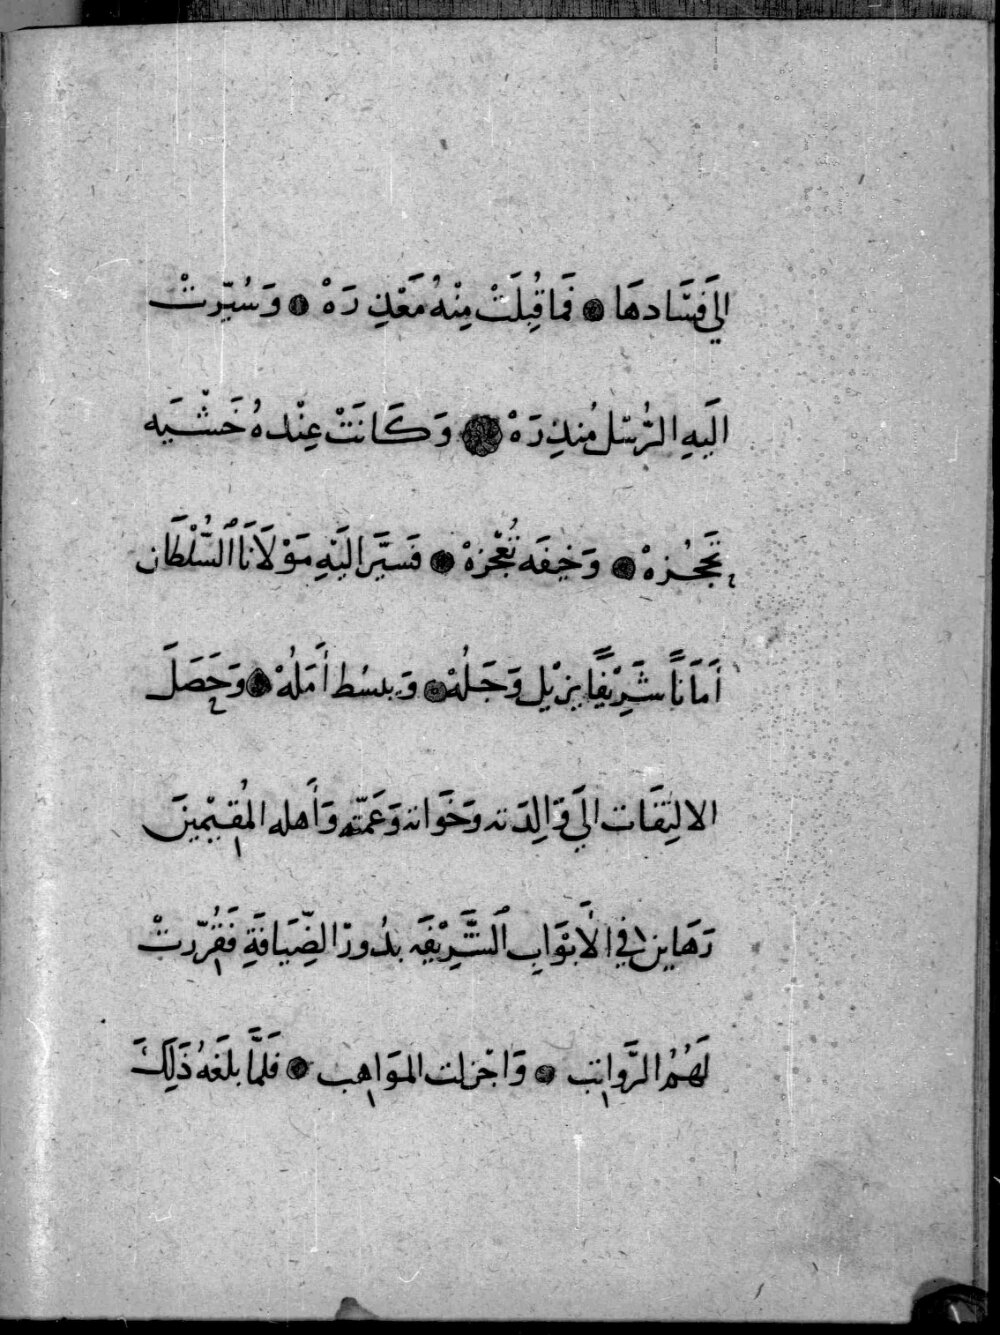 الَي فِسَادهَا ۞ فَما قُبِلَتْ مِنْهُ مَعْذِرَهْ ۞ وَسُيِّرتْ
الَيهِ الرُّسُل مُنذِرَهْ ۞ وَكَانَتْ عِنْدهُ خَشْيَه
تَحْجُزهْ ۞ وَخِيفَه تُعْجِزهْ ۞ فَسيَّر الَيْهِ مَوْلَانَا ٱلسُّلْطَان
أمَانَاً شَرِيْفَاً يزيْل وَجَلُهْ ۞ وَيبسُط أَمَلُهْ ۞ وَحَصَلَ
الالتِفَات الَي وَالِدَته وَخَواته وَعَمّته وَأَهله المُقيْمِينَ
رَهَاين في الأَبْوَابِ ٱلشَّرِيْفَه بدُور الضِّيَافَةِ فَقُرّرتْ
لَهُمُ الرَّواتب ۞ وَاجْزلت المَوَاهب ۞ فَلَمَّا بلغَهُ ذَلِكَ